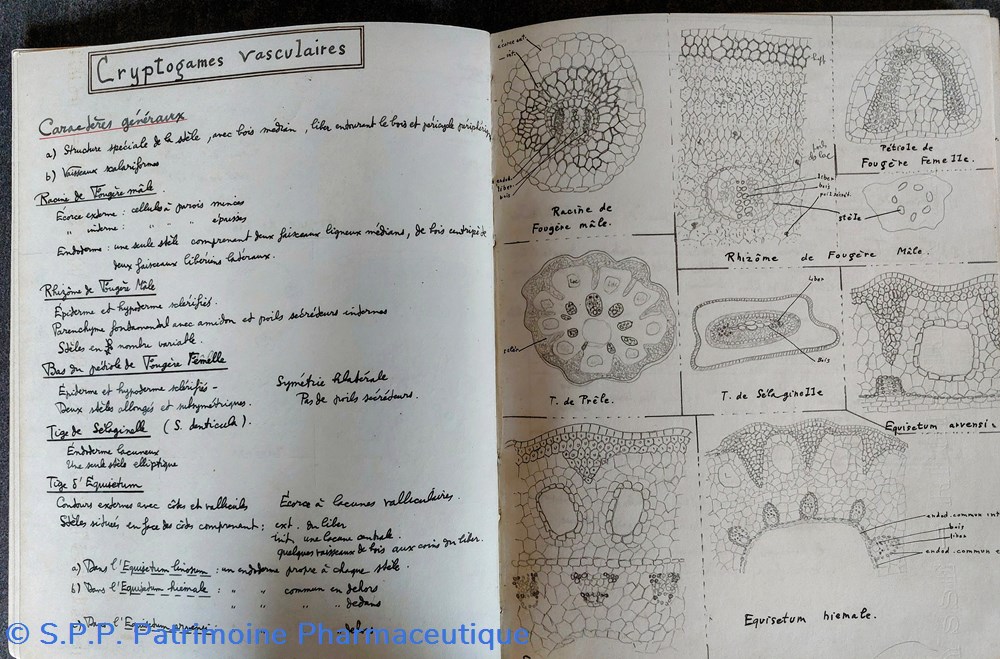 Cryptogames vasculaires
Caractères généraux
a) Structure spéciale de la stèle, avec bois médian, liber entourant le bois et pericycle periphérique
b) Vaisseaux scalariformes
Racine de Fougère mâle.
Ecorce externe : cellules à parois minces
" interne : " " " épaisses
Endoderme : une seule stèle comprenant deux faisceaux ligneux médians, de bois centripète
deux faisceaux libériens latéraux.
Rhizôme de Fougère Mâle
Epiderme et hypoderme sclérifiés.
Parenchyme fondamental avec amidon et poils secréteurs internes
Stèles en nombre variable.
Bas du pétiole de Fougère Femelle
Epiderme et hypoderme sclérifiés -
Symétrie bilatérale
Deux stèles allongés et subsymétriques.
Pas de poils secréteurs.
Tige de Sélaginelle (S. denticula).
Endoderme lacuneux
Une seule stèle elliptique
Tige d'Equisetum
Contours externes avec côtes et vallicules
Ecorce à lacunes valliculaires.
Stèles situés en face des côtes comprenant : ext. du liber
int. une lacune centrale.
quelques vaisseaux de bois aux coins du liber.
a) Dans l'Equisetum limosum : un endoderme propre à chaque stèle.
b) Dans l'Equisetum hiemale : " " commun en dehors
" " " dedans
Dans l'Equisetum arvense
© S.P.P. Patrimoine Pharmaceutique
écorce ext.
int.
endod.
liber
bois
Racine de
Fougère mâle.
hyp.
liber
bois
stèle
Rhizôme de Fougère Mâle.
Pétiole de
Fougère Femelle.
Lac
Lac
stèle
T. de Prêle.
liber
bois
T. de Sélaginelle
Equisetum arvensi
endod. commun int
bois
liber
endod. commun e
Equisetum hiemale.